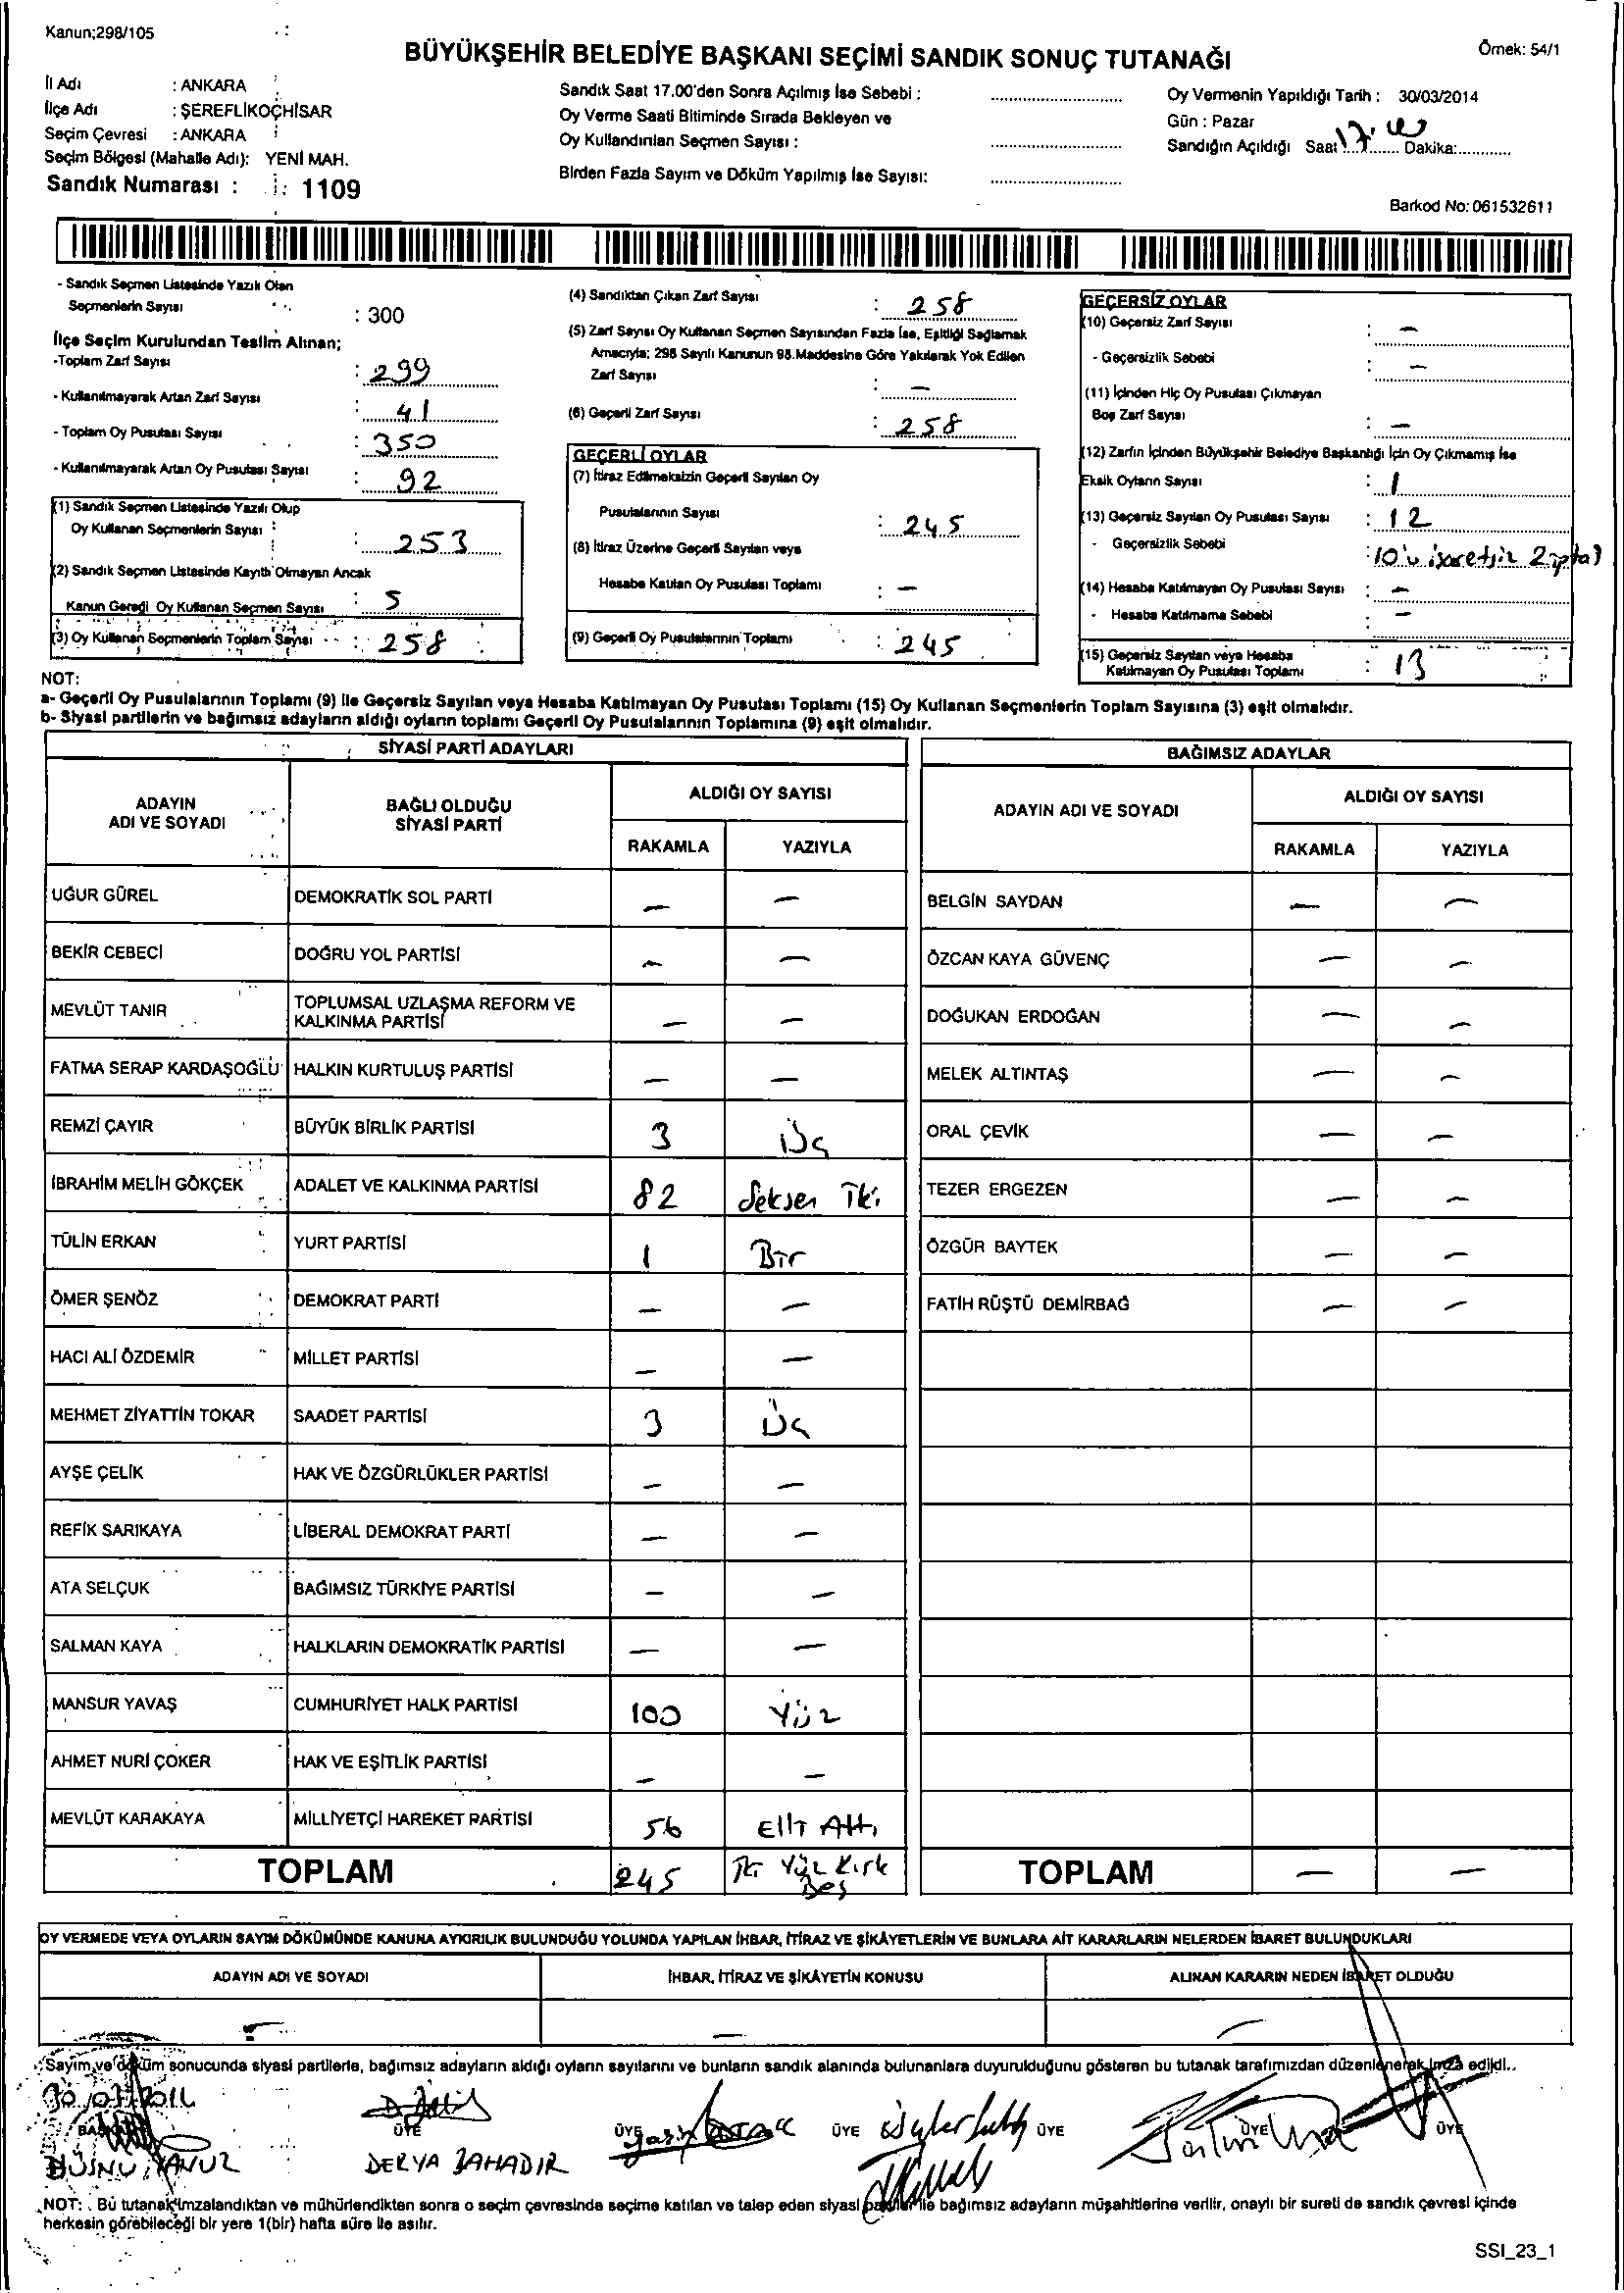 Kanun;298/105
Örnek: 54/1
BÜYÜKŞEHİR BELEDİYE BAŞKANI SEÇİMİ SANDIK SONUÇ TUTANAĞI
İl Adı : ANKARA
İlçe Adı : ŞEREFLİKOÇHİSAR
Seçim Çevresi : ANKARA
Seçim Bölgesi (Mahalle Adı): YENİ MAH.
Sandık Numarası : 1109
Sandık Saat 17.00'den Sonra Açılmış İse Sebebi :
Oy Verme Saati Bitiminde Sırada Bekleyen ve
Oy Kullandırılan Seçmen Sayısı :
Birden Fazla Sayım ve Döküm Yapılmış İse Sayısı:
Oy Vermenin Yapıldığı Tarih : 30/03/2014
Gün : Pazar
Sandığın Açıldığı Saat 17. Dakika:
Barkod No: 061532611
- Sandık Seçmen Listesinde Yazılı Olan
Seçmenlerin Sayısı : 300
İlçe Seçim Kurulundan Teslim Alınan;
-Toplam Zarf Sayısı : 299
- Kullanılmayarak Artan Zarf Sayısı : 41
- Toplam Oy Pusulası Sayısı : 350
- Kullanılmayarak Artan Oy Pusulası Sayısı : 92
(1) Sandık Seçmen Listesinde Yazılı Olup
Oy Kullanan Seçmenlerin Sayısı : 253
(2) Sandık Seçmen Listesinde Kayıtlı Olmayan Ancak
Kanun Gereği Oy Kullanan Seçmen Sayısı : 5
(3) Oy Kullanan Seçmenlerin Toplam Sayısı : 258
(4) Sandıktan Çıkan Zarf Sayısı : 258
(5) Zarf Sayısı Oy Kullanan Seçmen Sayısından Fazla İse, Eşitliği Sağlamak
Amacıyla; 298 Sayılı Kanunun 98.Maddesine Göre Yakılarak Yok Edilen
Zarf Sayısı : –
(6) Geçerli Zarf Sayısı : 258
GEÇERLİ OYLAR
(7) İtiraz Edilmeksizin Geçerli Sayılan Oy
Pusulalarının Sayısı : 245
(8) İtiraz Üzerine Geçerli Sayılan veya
Hesaba Katılan Oy Pusulası Toplamı : –
(9) Geçerli Oy Pusulalarının Toplamı : 245
GEÇERSİZ OYLAR
(10) Geçersiz Zarf Sayısı : –
- Geçersizlik Sebebi : –
(11) İçinden Hiç Oy Pusulası Çıkmayan
Boş Zarf Sayısı : –
(12) Zarfın İçinden Büyükşehir Belediye Başkanlığı İçin Oy Çıkmamış İse
Eksik Oyların Sayısı : 1
(13) Geçersiz Sayılan Oy Pusulası Sayısı : 12
- Geçersizlik Sebebi : 10'u işaretsiz 2 iptal
(14) Hesaba Katılmayan Oy Pusulası Sayısı : –
- Hesaba Katılmama Sebebi : –
(15) Geçersiz Sayılan veya Hesaba
Katılmayan Oy Pusulası Toplamı : 13
NOT:
a- Geçerli Oy Pusulalarının Toplamı (9) ile Geçersiz Sayılan veya Hesaba Katılmayan Oy Pusulası Toplamı (15) Oy Kullanan Seçmenlerin Toplam Sayısına (3) eşit olmalıdır.
b- Siyasi partilerin ve bağımsız adayların aldığı oyların toplamı Geçerli Oy Pusulalarının Toplamına (9) eşit olmalıdır.
SİYASİ PARTİ ADAYLARI
ADAYIN
ADI VE SOYADI
BAĞLI OLDUĞU
SİYASİ PARTİ
ALDIĞI OY SAYISI
RAKAMLA YAZIYLA
UĞUR GÜREL DEMOKRATİK SOL PARTİ – –
BEKİR CEBECİ DOĞRU YOL PARTİSİ – –
MEVLÜT TANIR TOPLUMSAL UZLAŞMA REFORM VE
KALKINMA PARTİSİ – –
FATMA SERAP KARDAŞOĞLU HALKIN KURTULUŞ PARTİSİ – –
REMZİ ÇAYIR BÜYÜK BİRLİK PARTİSİ 3 Üç
İBRAHİM MELİH GÖKÇEK ADALET VE KALKINMA PARTİSİ 82 Seksen İki
TÜLİN ERKAN YURT PARTİSİ 1 Bir
ÖMER ŞENÖZ DEMOKRAT PARTİ – –
HACI ALİ ÖZDEMİR MİLLET PARTİSİ – –
MEHMET ZİYATTİN TOKAR SAADET PARTİSİ 3 Üç
AYŞE ÇELİK HAK VE ÖZGÜRLÜKLER PARTİSİ – –
REFİK SARIKAYA LİBERAL DEMOKRAT PARTİ – –
ATA SELÇUK BAĞIMSIZ TÜRKİYE PARTİSİ – –
SALMAN KAYA HALKLARIN DEMOKRATİK PARTİSİ – –
MANSUR YAVAŞ CUMHURİYET HALK PARTİSİ 100 Yüz
AHMET NURİ ÇOKER HAK VE EŞİTLİK PARTİSİ – –
MEVLÜT KARAKAYA MİLLİYETÇİ HAREKET PARTİSİ 56 Elli Altı
TOPLAM 245 İki Yüz Kırk
Beş
BAĞIMSIZ ADAYLAR
ADAYIN ADI VE SOYADI
ALDIĞI OY SAYISI
RAKAMLA YAZIYLA
BELGİN SAYDAN – –
ÖZCAN KAYA GÜVENÇ – –
DOĞUKAN ERDOĞAN – –
MELEK ALTINTAŞ – –
ORAL ÇEVİK – –
TEZER ERGEZEN – –
ÖZGÜR BAYTEK – –
FATİH RÜŞTÜ DEMİRBAĞ – –
TOPLAM – –
OY VERMEDE VEYA OYLARIN SAYIM DÖKÜMÜNDE KANUNA AYKIRILIK BULUNDUĞU YOLUNDA YAPILAN İHBAR, İTİRAZ VE ŞİKÂYETLERİN VE BUNLARA AİT KARARLARIN NELERDEN İBARET BULUNDUKLARI
ADAYIN ADI VE SOYADI İHBAR, İTİRAZ VE ŞİKÂYETİN KONUSU ALINAN KARARIN NEDEN İBARET OLDUĞU
– – –
Sayım ve döküm sonucunda siyasi partilerle, bağımsız adayların aldığı oyların sayılarını ve bunların sandık alanında bulunanlara duyurulduğunu gösteren bu tutanak tarafımızdan düzenlenerek imza edildi..
BAŞKAN ÜYE ÜYE ÜYE ÜYE ÜYE ÜYE
HÜSNÜ YAVUZ DERYA BAHADIR
NOT: Bu tutanak imzalandıktan ve mühürlendikten sonra o seçim çevresinde seçime katılan ve talep eden siyasi partiler ile bağımsız adayların müşahitlerine verilir, onaylı bir sureti de sandık çevresi içinde
herkesin görebileceği bir yere 1(bir) hafta süre ile asılır.
SSI_23_1